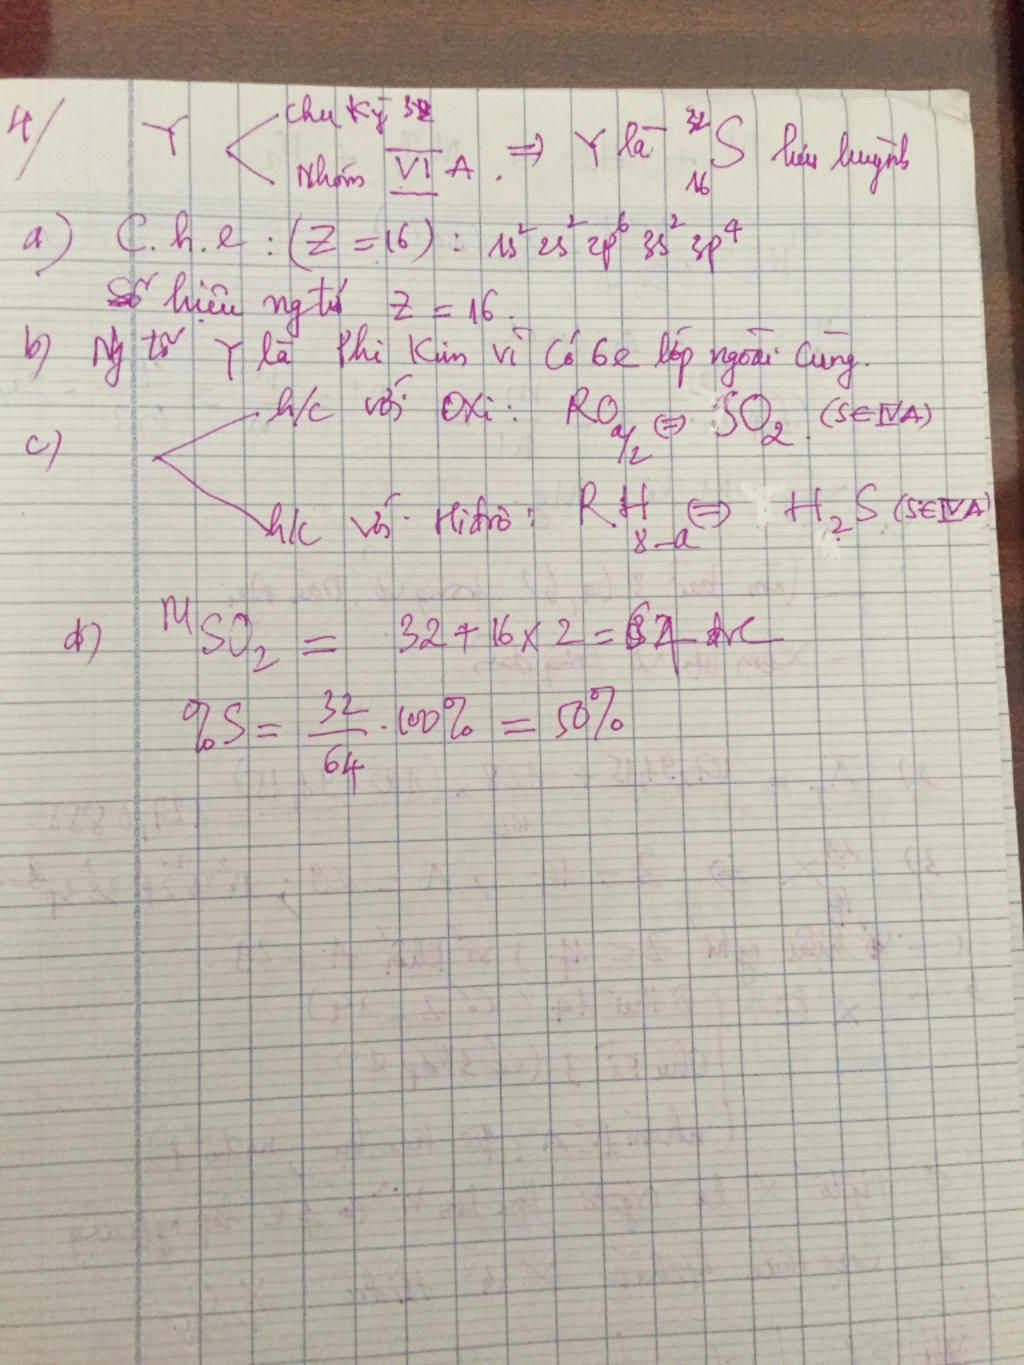 4/ Y Chu Kỳ 3
Nhóm VI A. => Y là 32 16 S lưu huỳnh
a) C.h.e : (Z = 16) : 1s² 2s² 2p⁶ 3s² 3p⁴
Số hiệu ng tử Z = 16.
b) Ng tử Y là Phi Kim vì Có 6e lớp ngoài Cùng.
c) h/c với Oxi : RO a/2 <=> SO₂ (S∈IVA)
h/c với Hiđrô : RH 8-a <=> H₂S (S∈IVA)
d) M SO₂ = 32 + 16 x 2 = 64 đvC
%S = 32/64 . 100% = 50%